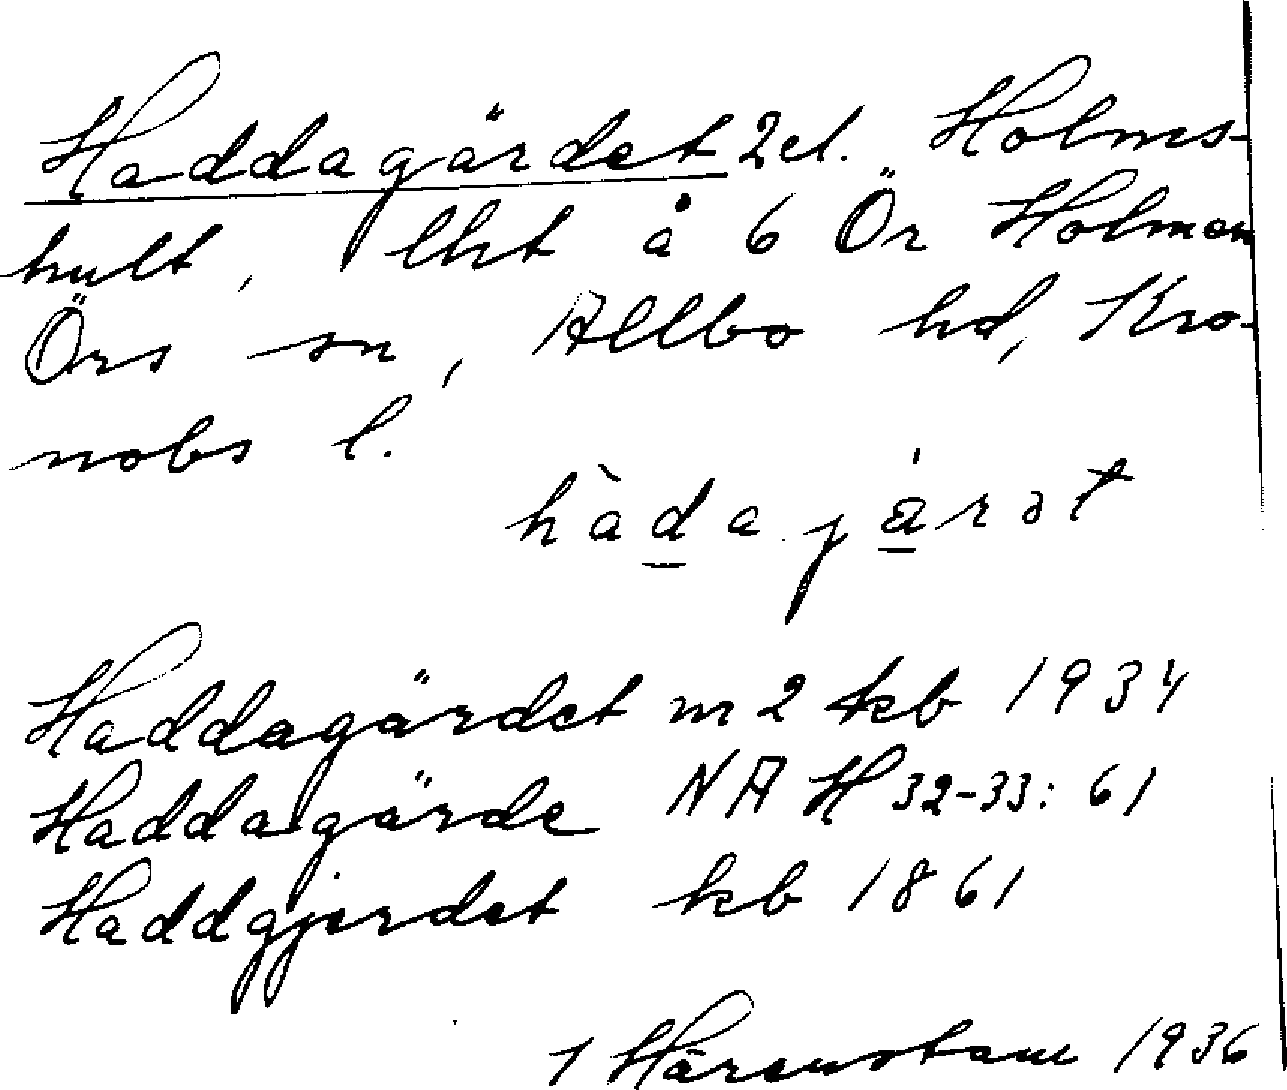 Haddagärdet 2 el. Holms-
hult, lht å 6 Ör Holmen
Örs sn, Allbo hd, Kro-
nobs l.
hàdajárət
Haddagärdet m 2 kb 1934
Haddagärde NA H 32-33: 61
Haddgjerdet kb 1861
1936